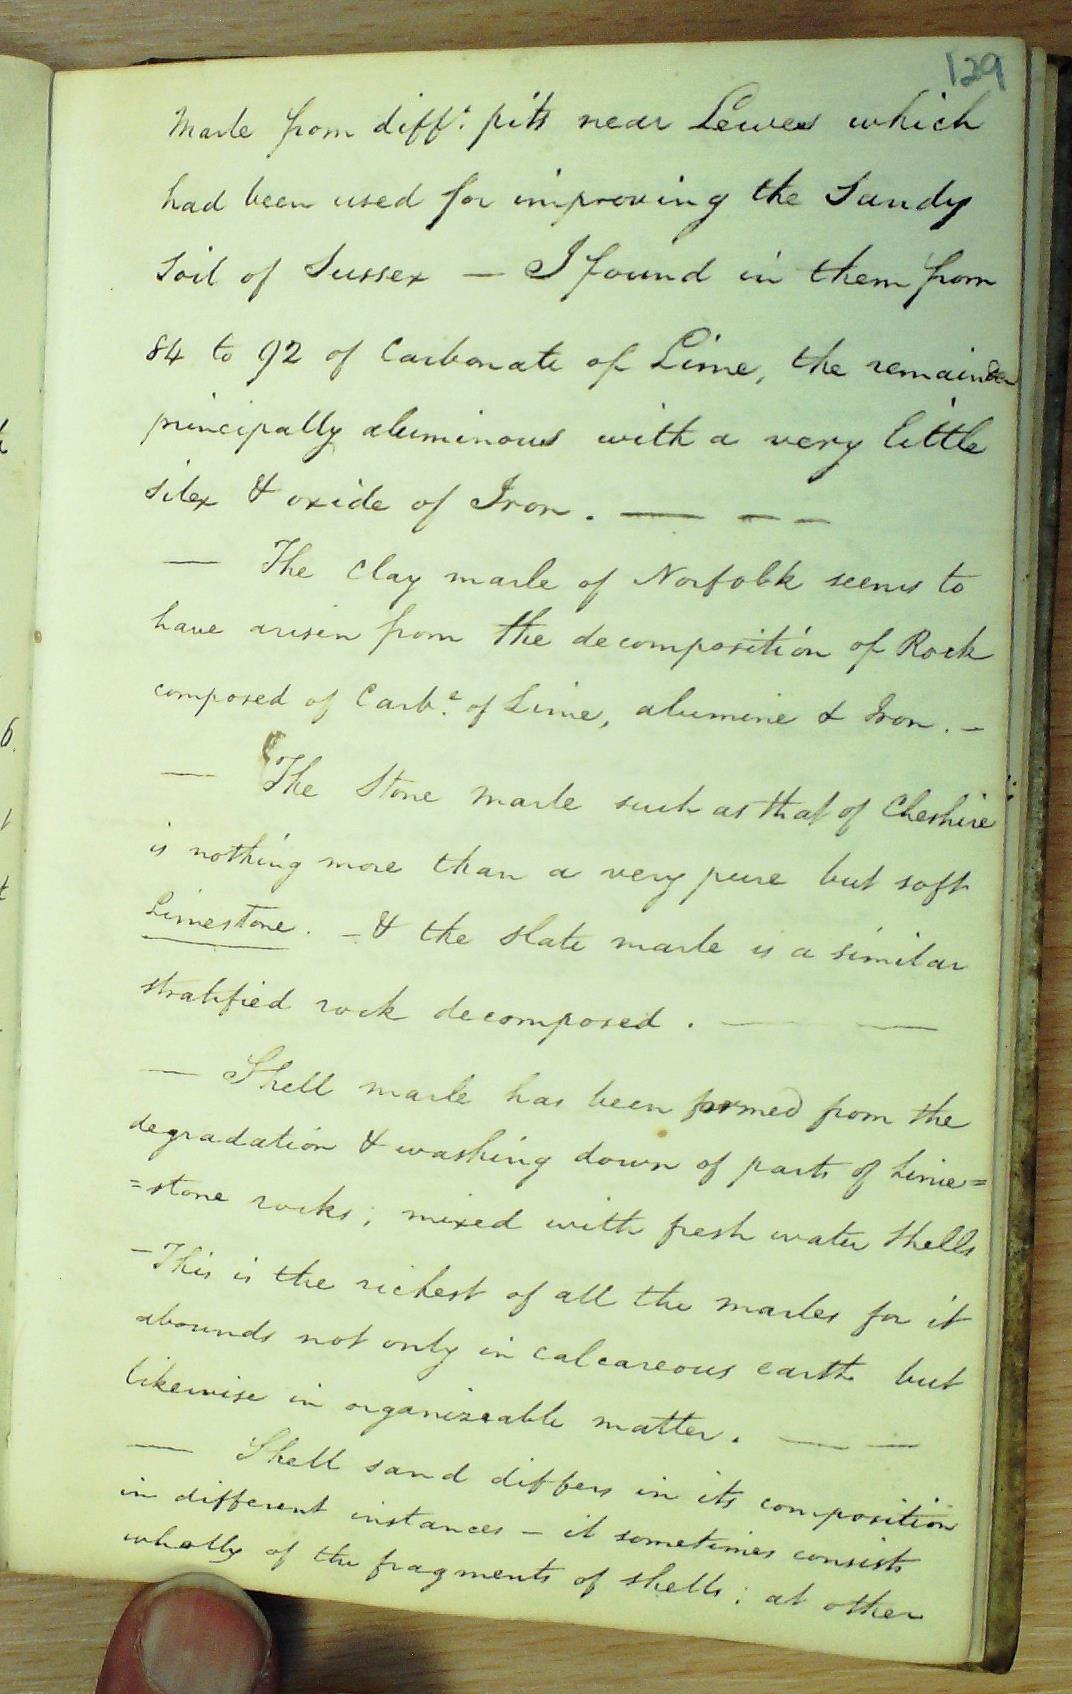 129
Marle from diff.t pits near Lewes which
had been used for improving the Sandy
Soil of Sussex — I found in them from
84 to 92 of Carbonate of Lime, the remainder
principally aluminous with a very little
silex & oxide of Iron. — — —
— The Clay marle of Norfolk seems to
have arisen from the decomposition of Rock
composed of Carb.e of Lime, alumine & Iron. —
— The Stone Marle such as that of Cheshire
is nothing more than a very pure but soft
Limestone. — & the slate marle is a similar
stratified rock decomposed. — —
— Shell marle has been formed from the
degradation & washing down of parts of Lime=
=stone rocks; mixed with fresh water Shells
— This is the richest of all the marles for it
abounds not only in calcareous earth but
likewise in organizeable matter. — —
— Shell sand differs in its composition
in different instances — it sometimes consists
wholly of the fragments of shells; at other